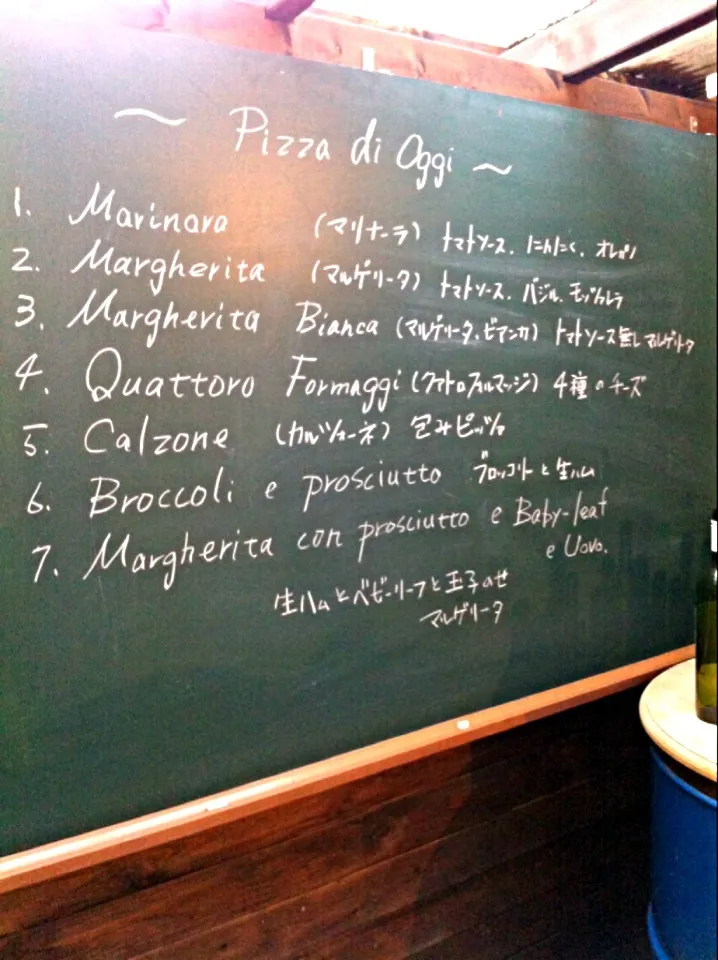 〜 Pizza di Oggi 〜
1. Marinara (マリナーラ) トマトソース、にんにく、オレガノ
2. Margherita (マルゲリータ) トマトソース、バジル、モッツァレラ
3. Margherita Bianca (マルゲリータ、ビアンカ) トマトソース無しマルゲリータ
4. Quattoro Formaggi (クアトロフォルマッジ) 4種のチーズ
5. Calzone (カルツォーネ) 包みピッツァ
6. Broccoli e prosciutto ブロッコリーと生ハム
7. Margherita con prosciutto e Baby-leaf
e Uovo.
生ハムとベビーリーフと玉子のせ
マルゲリータ